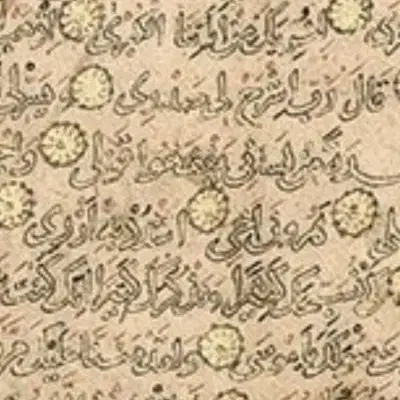 لنريك من اياتنا الكبرى اذهب
قال رب اشرح لي صدري ويسر لي
من لساني يفقهوا قولي
هرون اخي اشدد به ازري
كي نسبحك كثيرا ونذكرك كثيرا انك كنت
سؤلك يا موسى ولقد مننا عليك